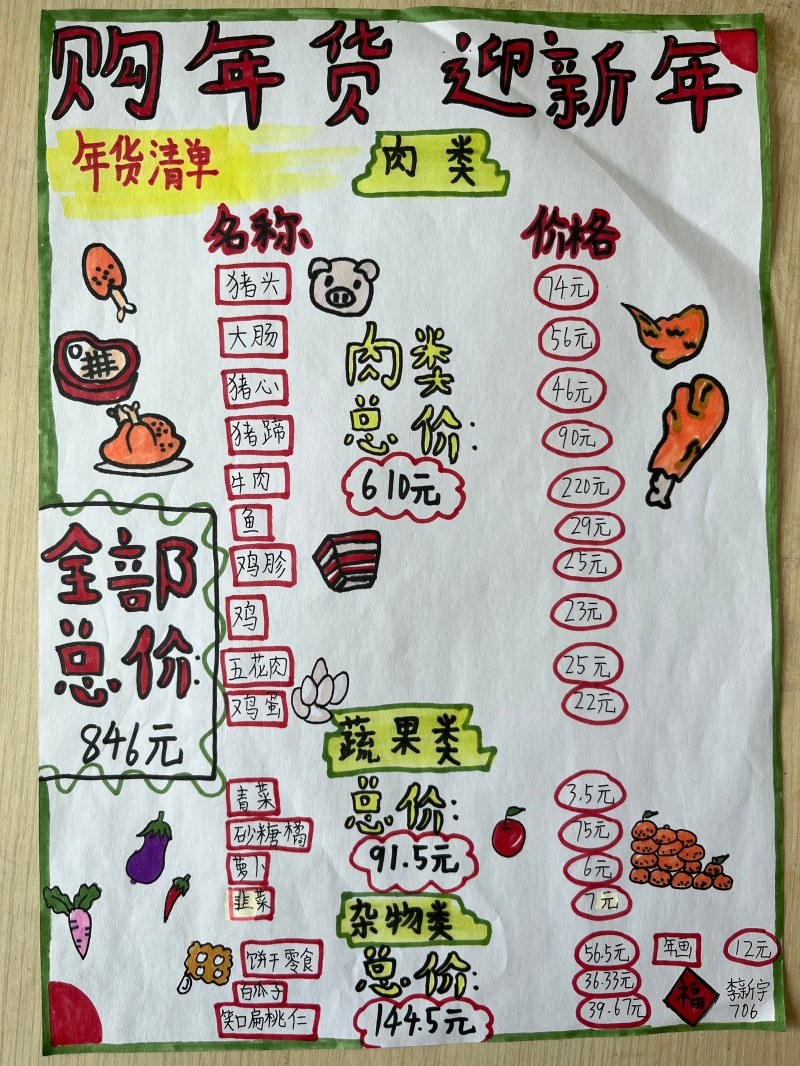 购年货 迎新年
年货清单
肉类
名称 价格
猪头 74元
大肠 56元
猪心 46元
猪蹄 90元
牛肉 220元
鱼 29元
鸡胗 25元
鸡 23元
五花肉 25元
鸡蛋 22元
肉类
总价:
610元
全部
总价:
846元
蔬果类
总价:
91.5元
青菜 3.5元
砂糖橘 75元
萝卜 6元
韭菜 7元
杂物类
总价:
144.5元
饼干零食 56.5元
白瓜子 36.33元
笑口扁桃仁 39.67元
年画 12元
福
李新宇
706